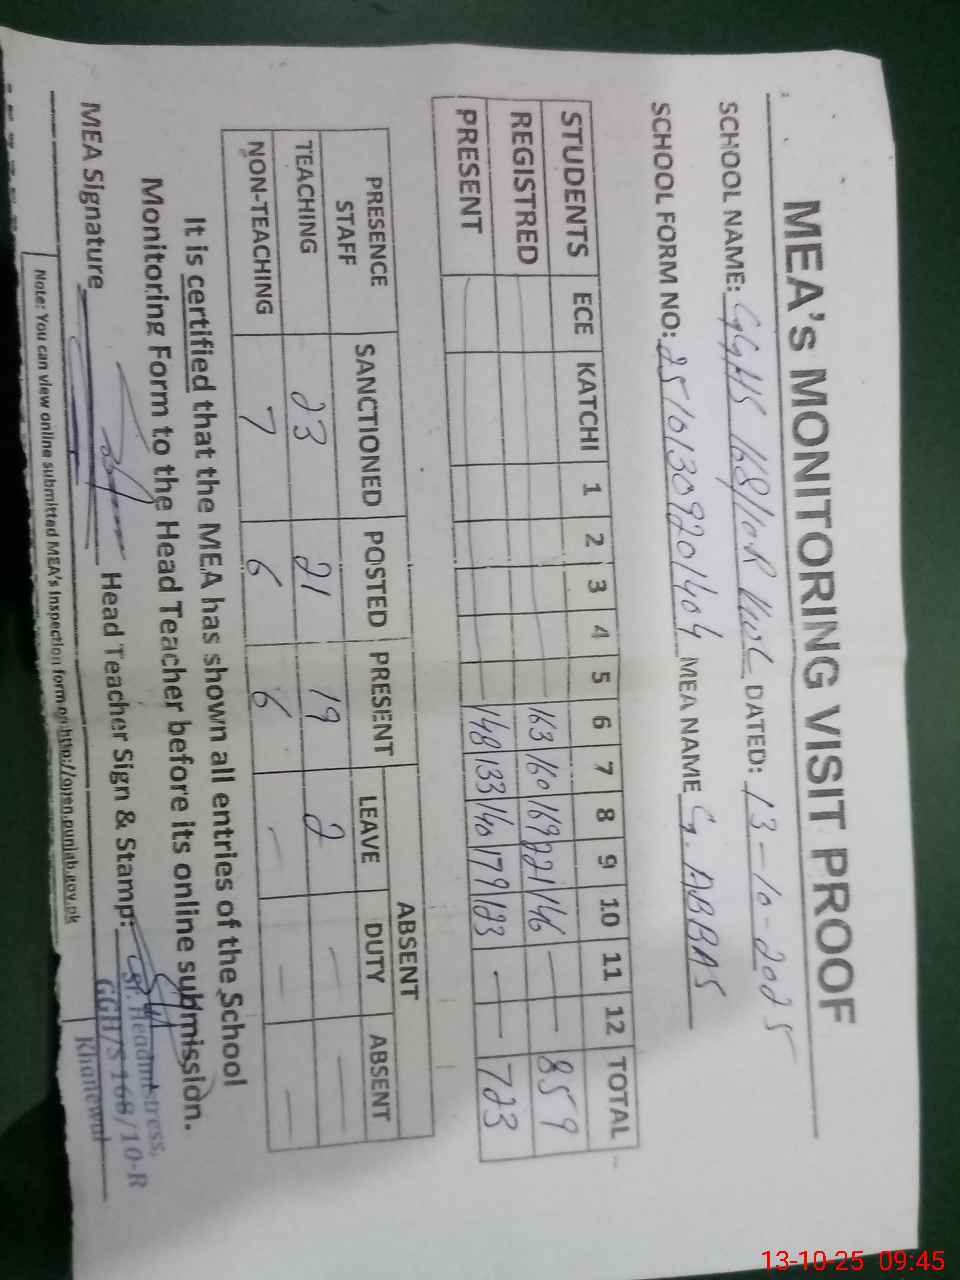 MEA's MONITORING VISIT PROOF
SCHOOL NAME: GGHS 168/10.R KWL DATED: 13-10-2025
SCHOOL FORM NO: 25101309201404 MEA NAME G. ABBAS
STUDENTS ECE KATCHI 1 2 3 4 5 6 7 8 9 10 11 12 TOTAL
REGISTRED — — — — — — — 163 160 169 221 146 — — 859
PRESENT — — — — — — — 148 133 140 179 123 - — 723
PRESENCE STAFF SANCTIONED POSTED PRESENT ABSENT
LEAVE DUTY ABSENT
TEACHING 23 21 19 2 — —
NON-TEACHING 7 6 6 — — —
It is certified that the MEA has shown all entries of the School
Monitoring Form to the Head Teacher before its online submission.
MEA Signature Head Teacher Sign & Stamp:
Sr. Headmistress,
GGH/S 168/10-R
Khanewal
Note: You can view online submitted MEA's Inspection form on http://open.punjab.gov.pk
13-10-25 09:45